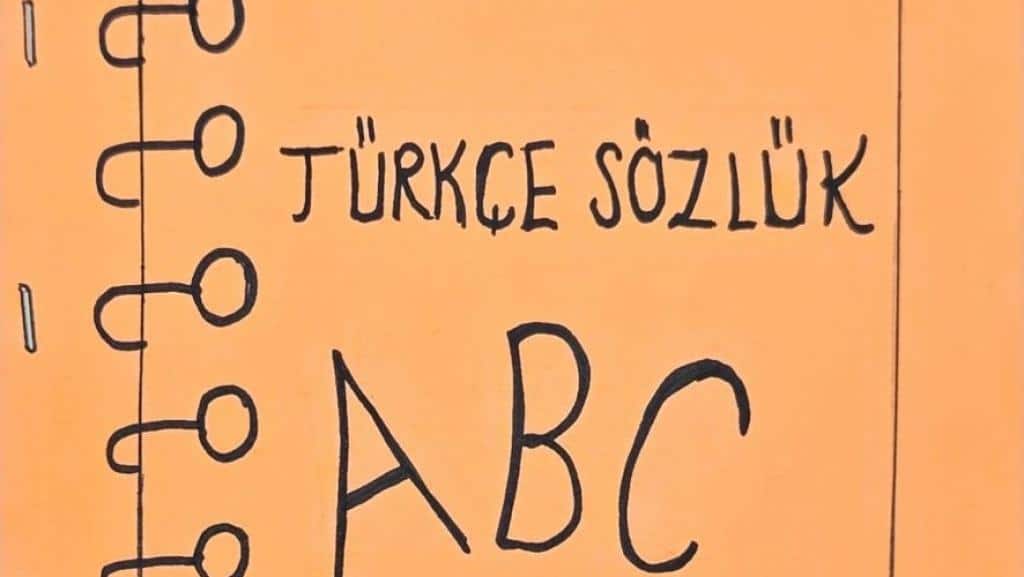 TÜRKÇE SÖZLÜK
ABC